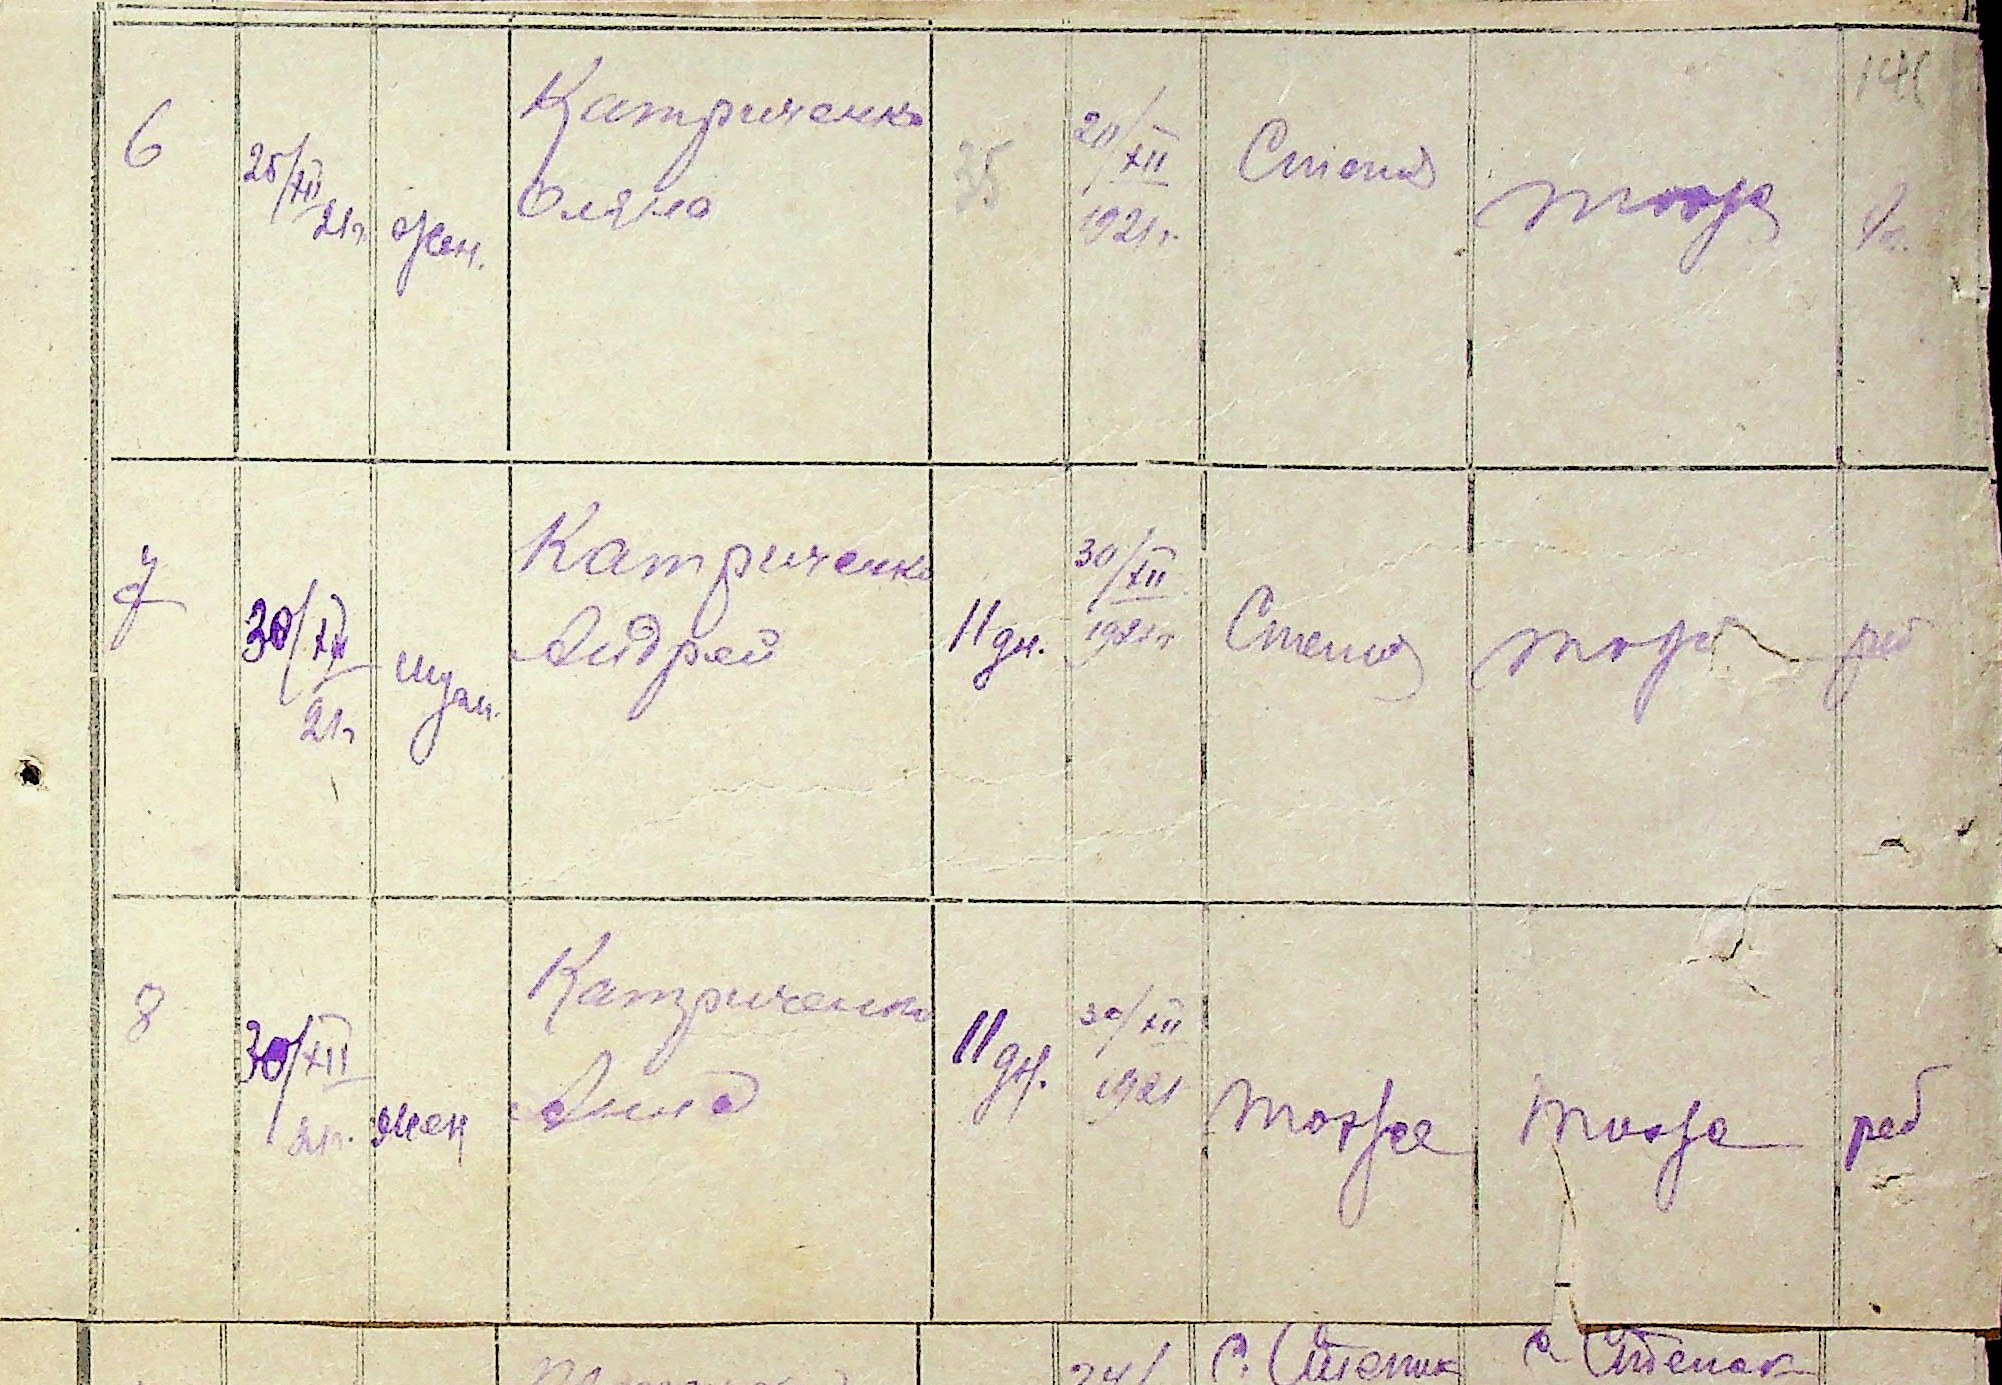 141
6
25/XII
21г.
жен.
Катриченко
Оляна
35
20/XII
1921г.
Степок
тоже
7
30/XII
21г
муж.
Катриченко
Андрей
11 дн.
30/XII
1921г
Степок
тоже
реб
8
30/XII
21г.
жен
Катриченко
Анна
11 дн.
30/XII
1921
тоже
тоже
реб
24/
с. Степок
с. Степок